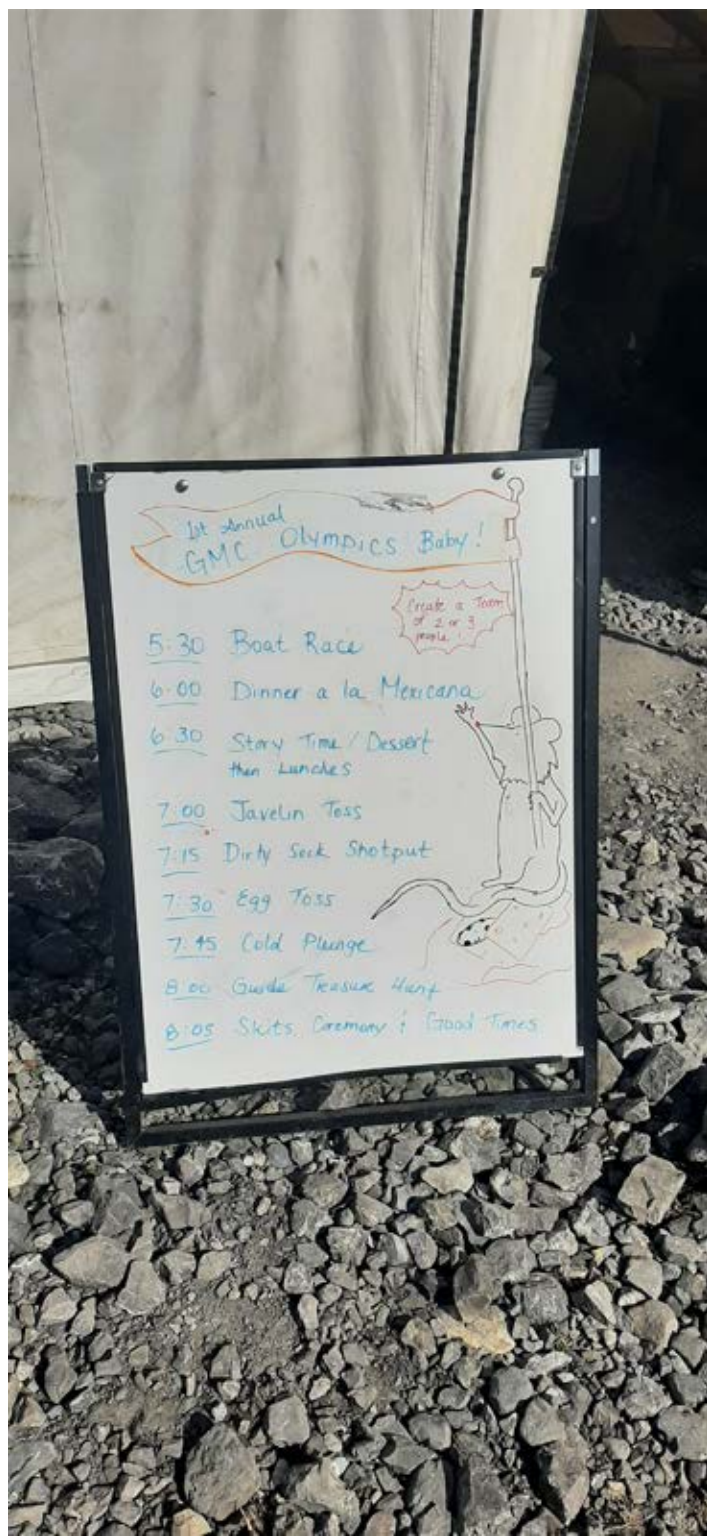 1st Annual
GMC Olympics Baby!
Create a Team
of 2 or 3
people!
5:30 Boat Race
6:00 Dinner a la Mexicana
6:30 Story Time / Dessert
then Lunches
7:00 Javelin Toss
7:15 Dirty Sock Shotput
7:30 Egg Toss
7:45 Cold Plunge
8:00 Guide Treasure Hunt
8:05 Skits, Ceremony & Good Times